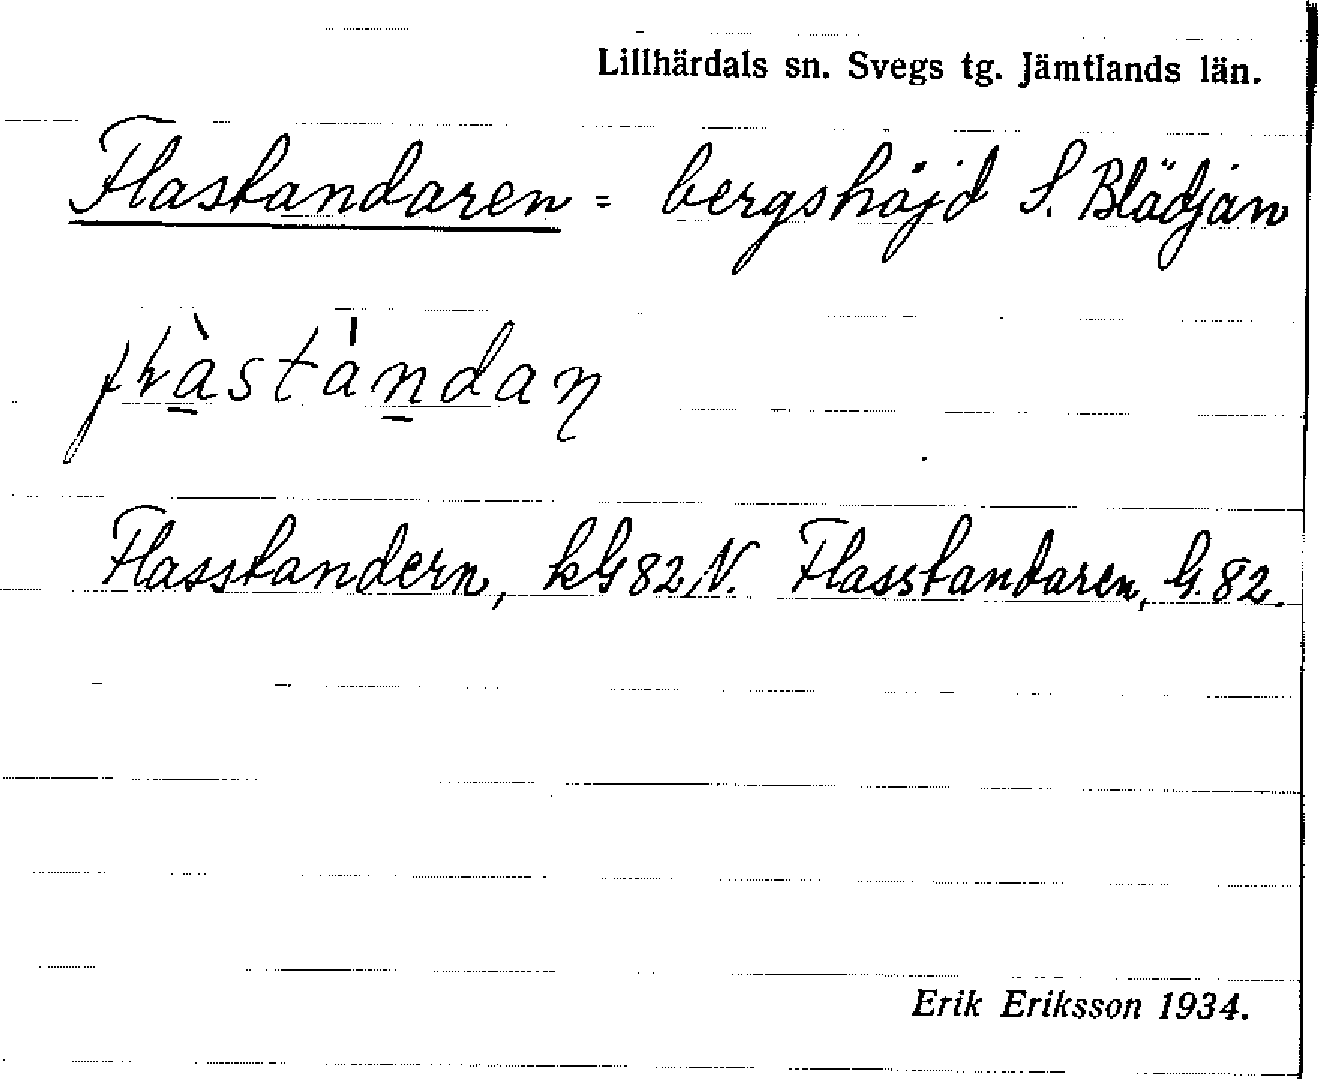 Lillhärdals sn. Svegs tg. Jämtlands län.
Flastandaren = bergshöjd S. Blädjan
Flasstandern, kG 82 N. Flasstandaren, G. 82.
Erik Eriksson 1934.